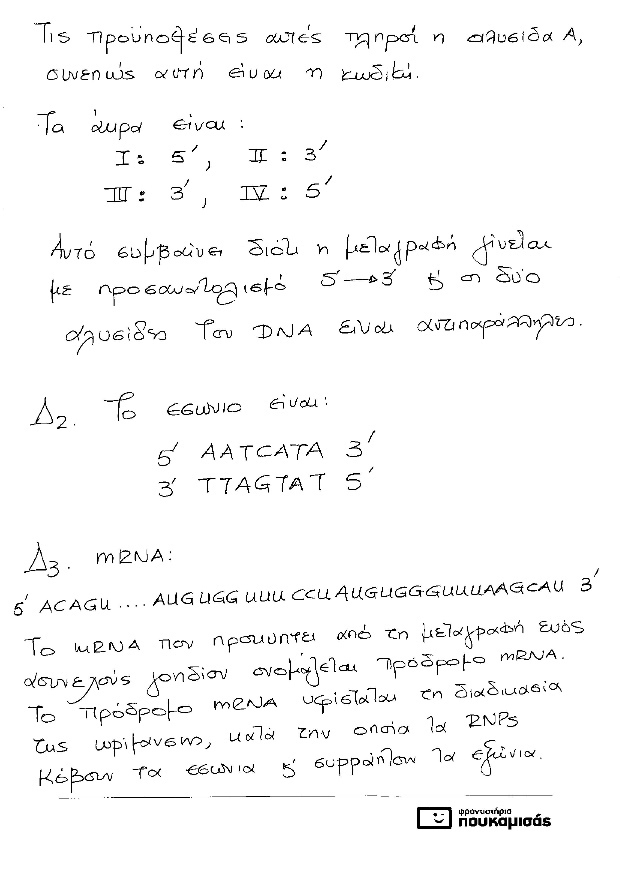 Τις προϋποθέσεις αυτές πληροί η αλυσίδα Α,
συνεπώς αυτή είναι η κωδική.
Τα άκρα είναι:
I: 5', II: 3'
III: 3', IV: 5'
Αυτό συμβαίνει διότι η μεταγραφή γίνεται
με προσανατολισμό 5'→3' & οι δύο
αλυσίδες του DNA είναι αντιπαράλληλες.
Δ2. Το εσώνιο είναι:
5' AATCATA 3'
3' TTAGTAT 5'
Δ3. mRNA:
5' ACAGU .... AUG UGG UUU CCU AUGUGGGUUUAAGCAU 3'
Το mRNA που προκύπτει από τη μεταγραφή ενός
ασυνεχούς γονιδίου ονομάζεται πρόδρομο mRNA.
Το πρόδρομο mRNA υφίσταται τη διαδικασία
της ωρίμανσης, κατά την οποία τα RNPs
κόβουν τα εσώνια & συρράπτουν τα εξώνια.
φροντιστήρια
πουκαμισάς